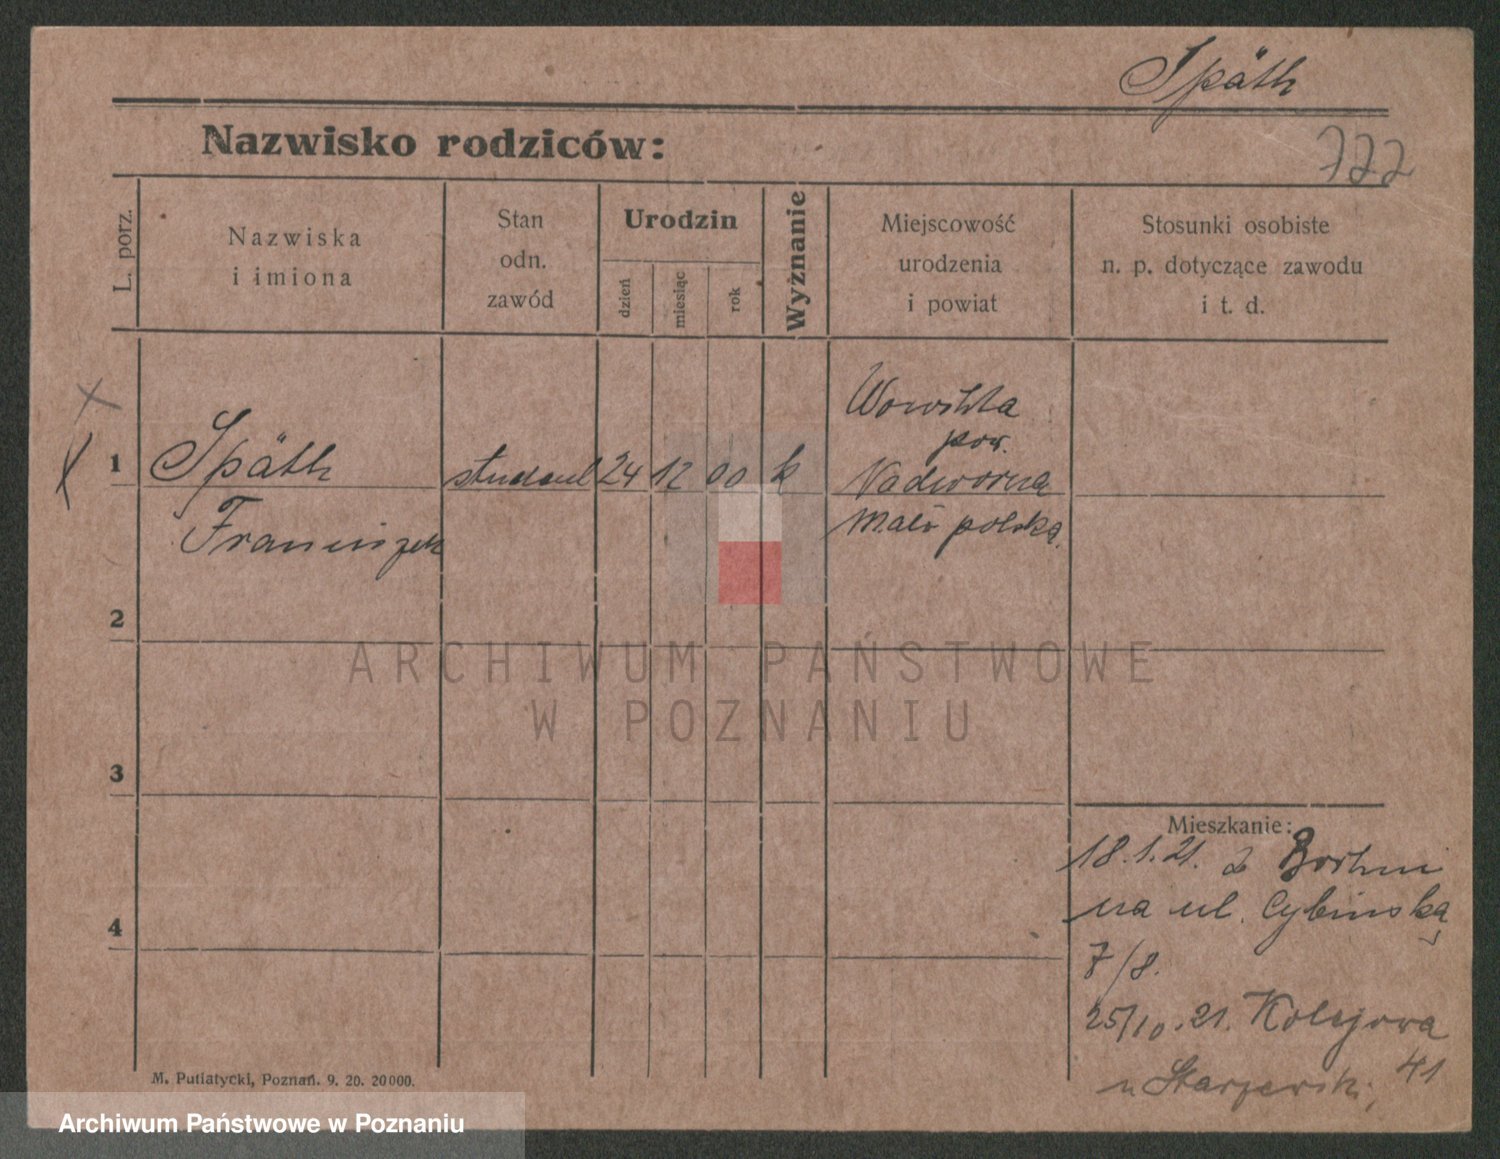 Späth
Nazwisko rodziców:
777
L. porz.
Nazwiska
i imiona
Stan
odn.
zawód
Urodzin
dzień
miesiąc
rok
Wyżnanie
Miejscowość
urodzenia
i powiat
Stosunki osobiste
n. p. dotyczące zawodu
i t. d.
1
Späth
Franciszek
student
24
12
00
k
pow.
Nadworna
Mało polska.
2
3
4
Mieszkanie:
18.1.21. z
na ul. Cybińską
7/8.
25/10.21. Kolejowa
41
M. Putiatycki, Poznań. 9. 20. 20000.
ARCHIWUM PAŃSTWOWE
W POZNANIU
Archiwum Państwowe w Poznaniu